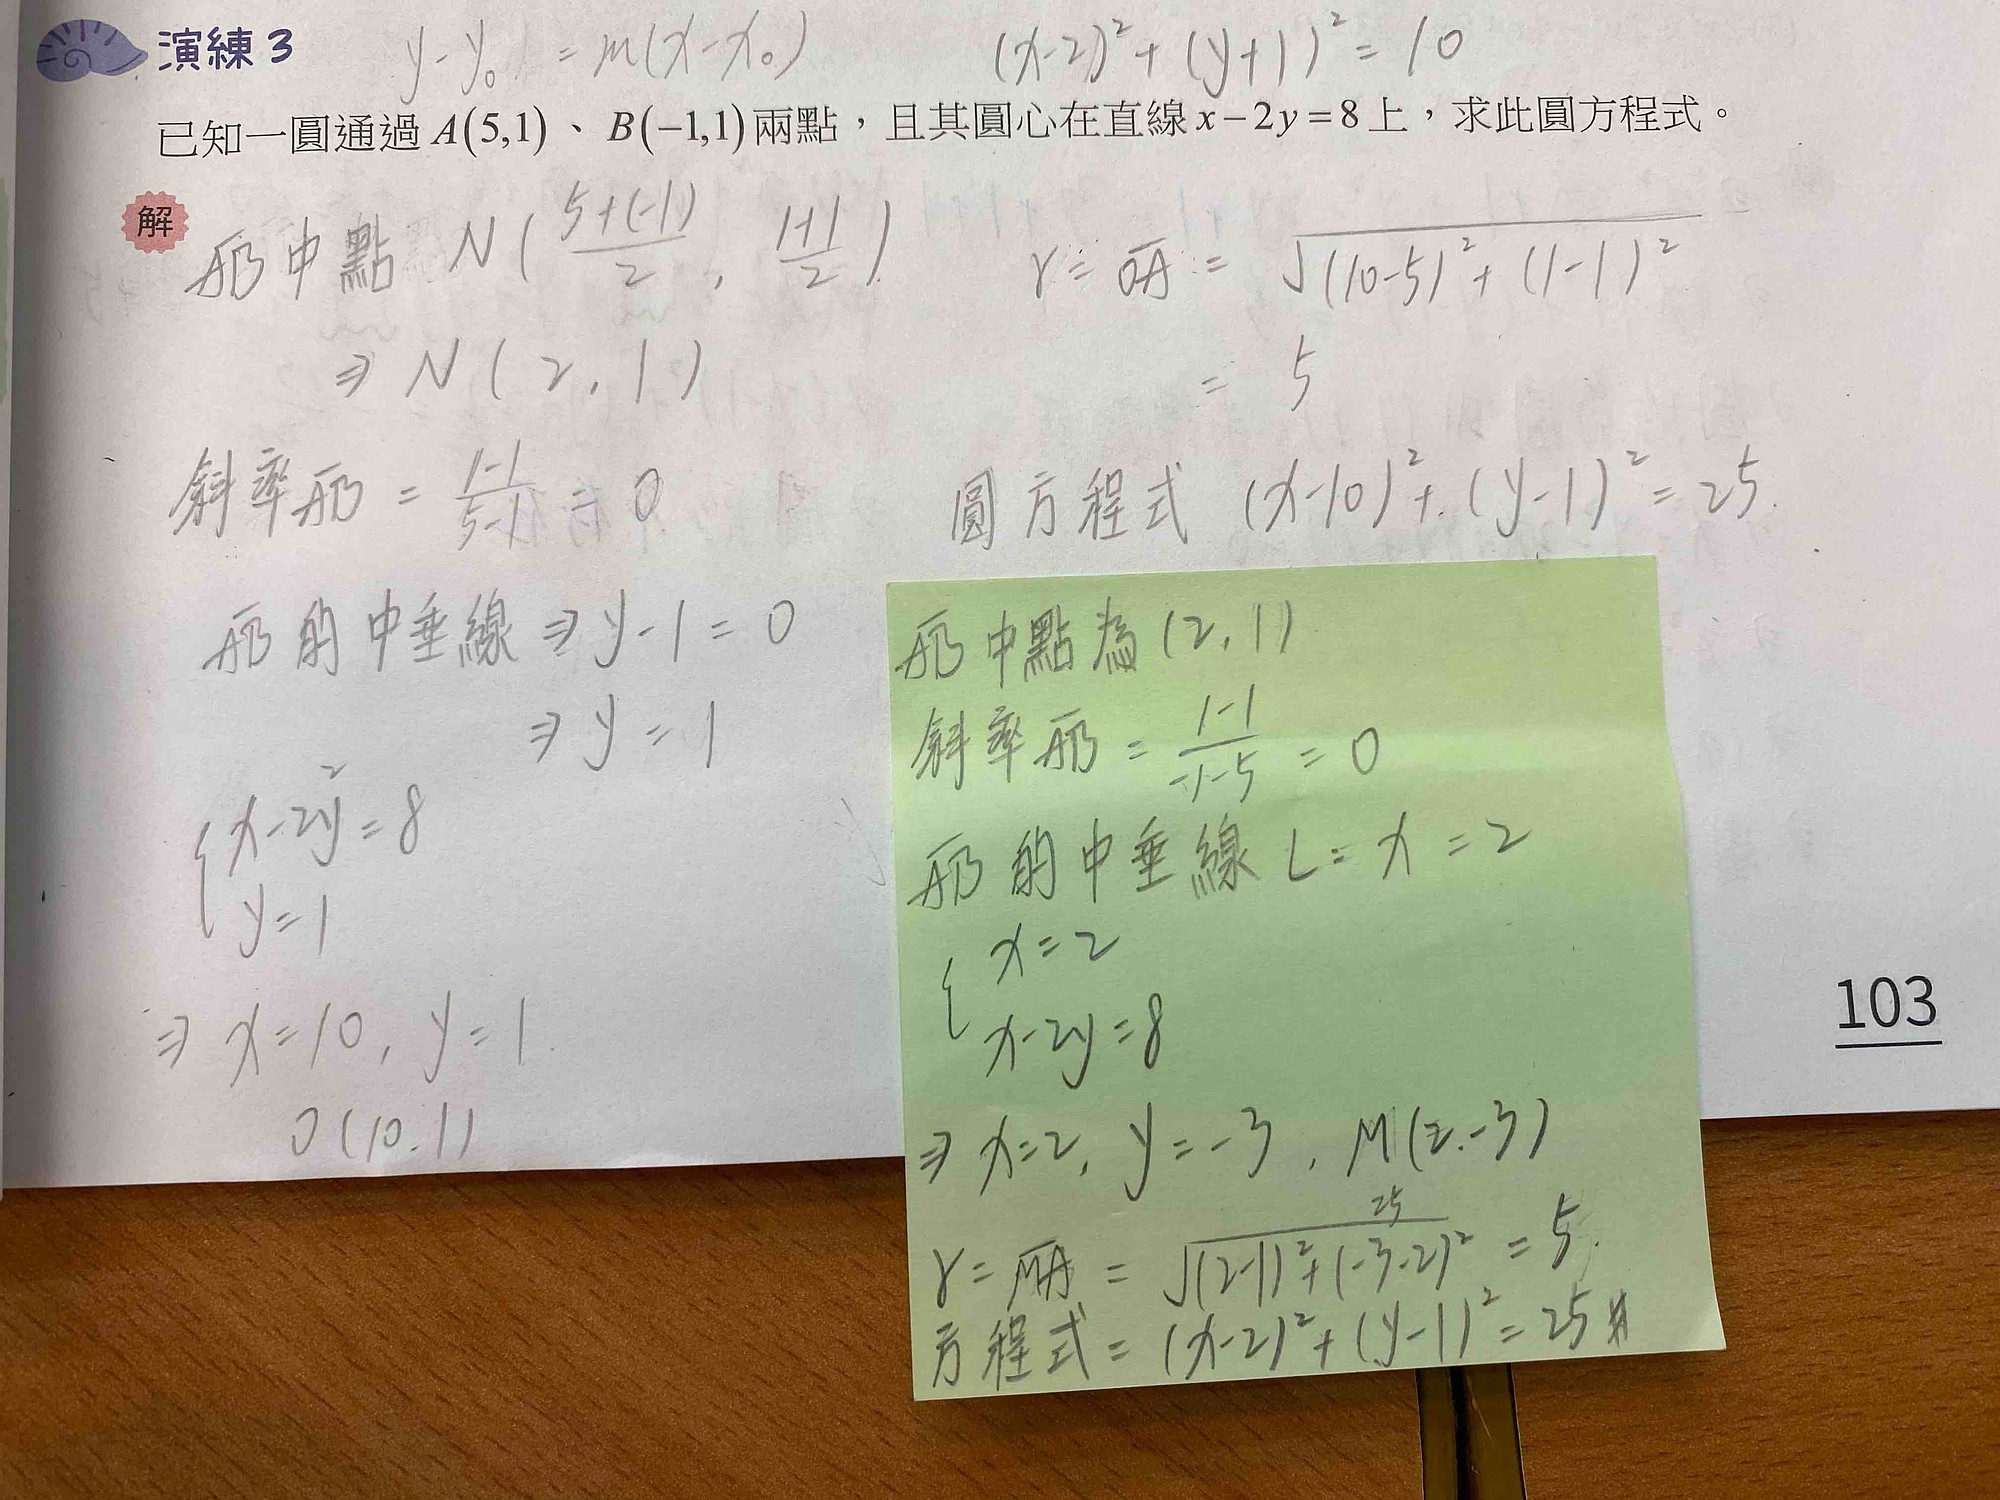 演練 3
y-y₀ = m(x-x₀)
(x-2)²+(y+1)²=10
已知一圓通過 A(5,1)、B(-1,1) 兩點,且其圓心在直線 x-2y=8 上,求此圓方程式。
解
AB中點 N( (5+(-1))/2 , (1+1)/2 )
⇒ N(2,1)
斜率AB = (1-1)/(5-1) = 0
AB的中垂線 ⇒ y-1=0
⇒ y=1
{ x-2y=8
y=1
⇒ x=10, y=1
O(10,1)
r = OA = √((10-5)²+(1-1)²)
= 5
圓方程式 (x-10)²+(y-1)²=25
AB中點為(2,1)
斜率AB = (1-1)/(-1-5) = 0
AB的中垂線 L = x = 2
{ x=2
x-2y=8
⇒ x=2, y=-3, M(2,-3)
25
r = MA = √((2-1)²+(-3-2)²) = 5
方程式 = (x-2)²+(y-1)²=25#
103